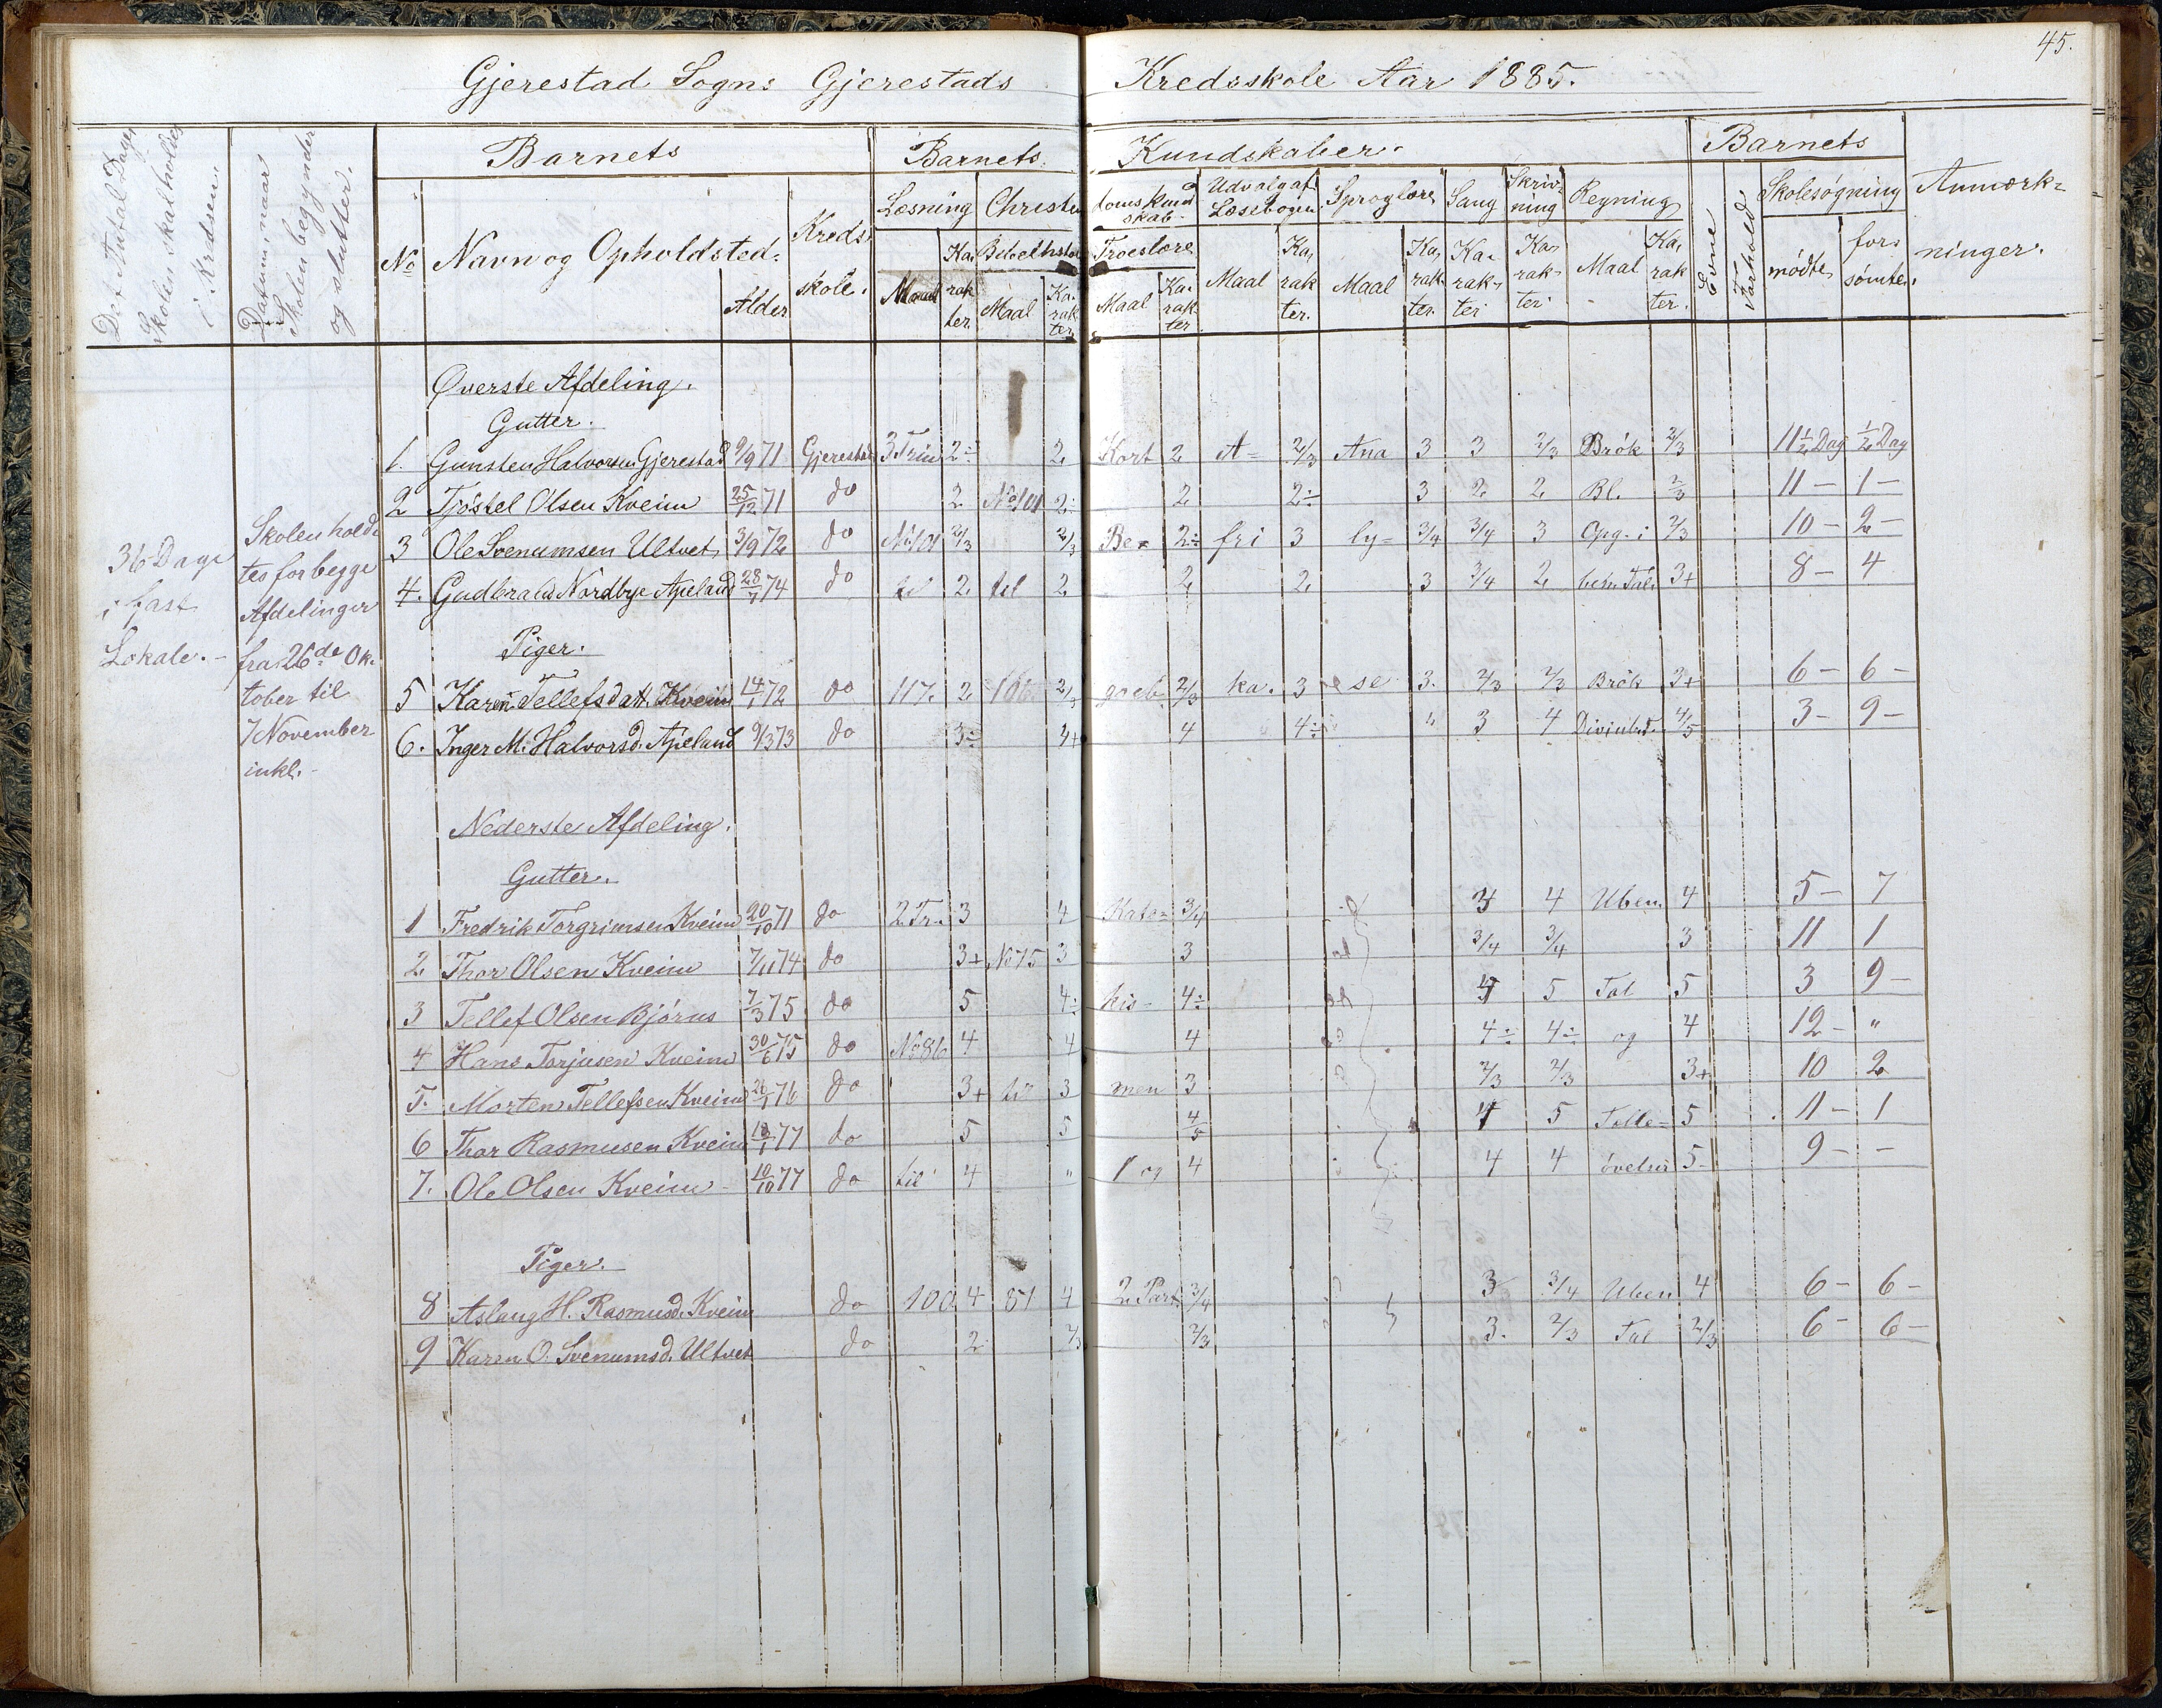 45.
Gjerestad Sogns Gjerestads Kredsskole Aar 1885.
Det Antal Dage, Skolen skal holdes i Kredsen.
Datum, naar Skolen begynder og slutter.
Barnets
Barnets Kundskaber.
Barnets
Anmærkninger.
No
Navn og Opholdsted.
Alder
Kredsskole.
Læsning
Christendomskundskab.
Udvalg af Læsebogen
Sproglære
Sang
Skrivning
Regning
Evne
Forhold
Skolesøgning
Maal
Karakter.
Bibelhistorie
Maal
Karakter
Troeslære
Maal
Karakter
Maal
Karakter.
Maal
Karakter.
Karakter
Karakter
Maal
Karakter.
mødte
forsømte.
36 Dage
i fast
Lokale.-
Skolen holdtes for begge
Afdelinger
fra 26de Oktober til
7 November
inkl.-
Øverste Afdeling.
Gutter.
1. Gunsten Halvorsen Gjerestad 9/9 71 Gjerestad 3 Trin 2÷ 2 Kort 2 A= 2/3 Ana 3 3 2/3 Brök 2/3 11½ Dag ½ Dag
2 Tjöstel Olsen Kveim 25/12 71 do 2 No 101 2÷ 2 2÷ 3 2 2 Bl. 2/3 11 - 1 -
3 Ole Svenumsen Ultvet 3/9 72 do No 101 2/3 2/3 Be= 2÷ fri 3 ly= 3/4 3/4 3 Opg. i 2/3 10 - 2 -
4. Gudbrand Nordbye Apeland 28/1 74 do til 2 til 2 2 2 3 3/4 2 ben. Tal. 3+ 8 - 4
Piger.
5 Karen Tellefsdatt. Kveim 14/1 72 do 117. 2 106 2/3 2/3 ka. 3 se 3. 2/3 2/3 Brök 3+ 6 - 6 -
6. Inger M. Halvorsd. Apeland 9/3 73 do 3÷ 3+ 4 4÷ " 3 4 4/5 3 - 9 -
Nederste Afdeling.
Gutter.
1 Fredrik Torgrimsen Kveim 20/10 71 do 2 Tr. 3 4 Kate= 3/4 4 Uben. 4 5 - 7
2 Thor Olsen Kveim 7/11 74 do 3+ No 75 3 3 3/4 3/4 3 11 1
3 Tellef Olsen Bjórus 7/3 75 do 5 4÷ kis- 4÷ 5 Tal 5 3 9 -
4 Hans Torjusen Kveim 30/6 75 do No 86 4 4 4 4÷ 4÷ og 4 12 - "
5. Morten Tellefsen Kveim 26/1 76 do 3+ til 3 men 3 2/3 2/3 3+ 10 2
6 Thor Rasmusen Kveim 18/1 77 do 5 5 4/5 4 5 Tælle= 5 11 - 1
7. Ole Olsen Kveim 10/10 77 do til 4 " 1 og 4 4 4 övelser 5- 9 - -
Piger.
8 Aslaug H. Rasmusd. Kveim do 100 4 81 4 2. Part 3/4 3 3/4 Uben 4 6 - 6 -
9 Karen O. Svenumsd. Ultvet do 2 2/3 2/3 3. 2/3 Tal 2/3 6 - 6 -